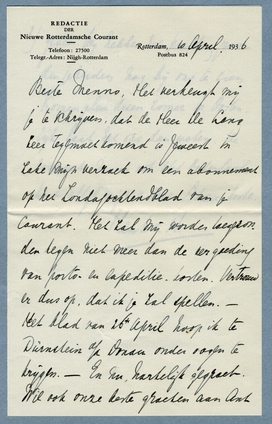 REDACTIE
DER
Nieuwe Rotterdamsche Courant
Telefoon: 27500
Telegr.-Adres: Nijgh-Rotterdam
Rotterdam, 10 April, 1936
Postbus 824
Beste Menno, Het verheugt mij
je te schrijven, dat de Heer de Jong
zeer tegemoetkomend is geweest in
zake mijn verzoek om een abonnement
op het Zondagochtendblad van je
Courant. Het zal mij worden toegezon-
den tegen niet meer dan de vergoeding
van porto- en expeditie-kosten. Vertrouw
er dus op, dat ik je zal spellen. —
Het blad van 26n April hoop ik te
Dürnstein a/d Donau onder oogen te
krijgen. — En nu, hartelijk gegroet.
Wil ook onze beste groeten aan Ant